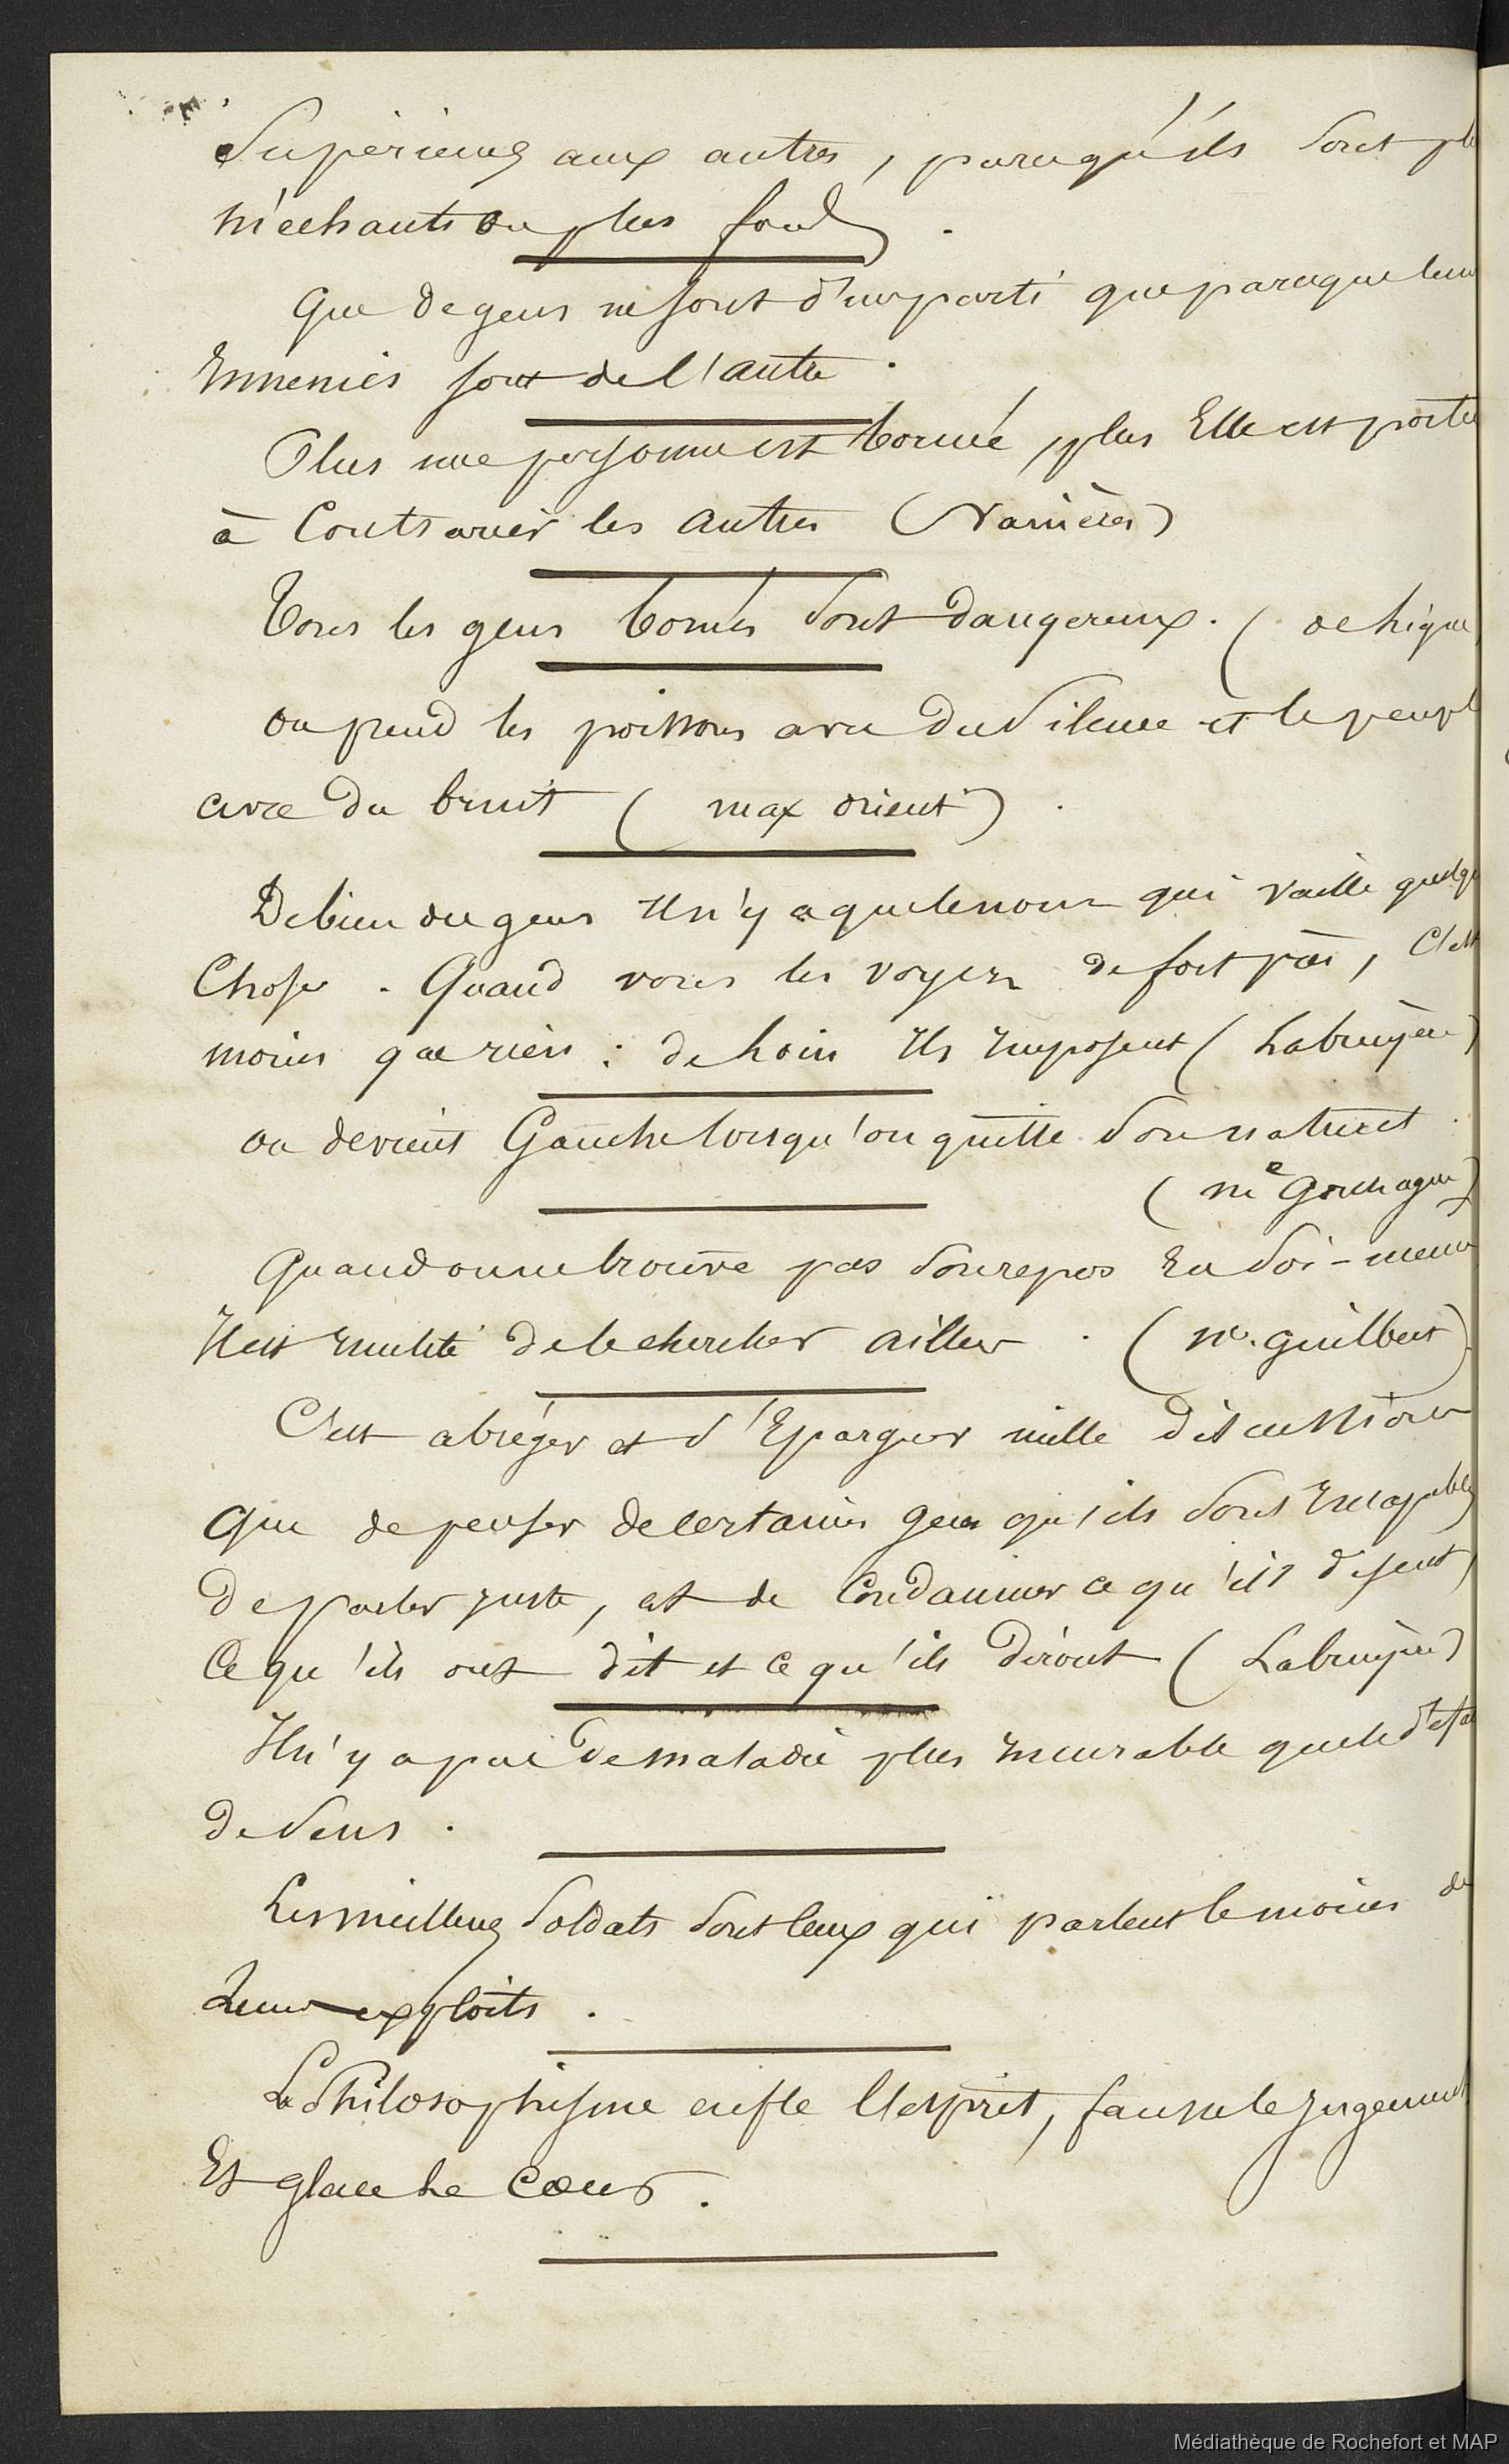 Supérieurs aux autres, parcequ'ils sont
méchants ou plus fous.
Que de gens ne sont d'un parti que parceque leurs
Ennemies sont de l'autre.
Plus une personne est bornée, plus Elle est portée
à Contrarier les autres
Tous les gens bornés sont dangereux. (de
on prend les poissons avec du Silence et le peupl
avec du bruit (max orient)
De bien des gens Il n'y a que le nom qui vaille quelqu
Chose. Quand vous les voyez de fort près, C'est
moins que rien : de Loin Ils Imposent (Labruyère)
on devient Gauche lorsqu'on quitte son naturel.
(me
Quand on ne trouve pas son repos En Soi-meme
Il est Inutile de le chercher ailleur. (N. guilbert)
C'est abréger et s'Epargner mille discussions
Que de penser de certaines gens qu'ils sont Incapables
De parler juste, et de Condamner ce qu'ils disent,
Ce qu'ils ont dit et ce qu'ils diront (Labruyère)
Il n'y a pas de maladie plus Incurable que le
De Sens.
Les meilleurs Soldats sont Ceux qui parlent le moins de
Leurs exploits.
Le Philosophisme enfle l'esprit, fausse le jugement
Et glace Le Coeur.
Médiathèque de Rochefort et MAP